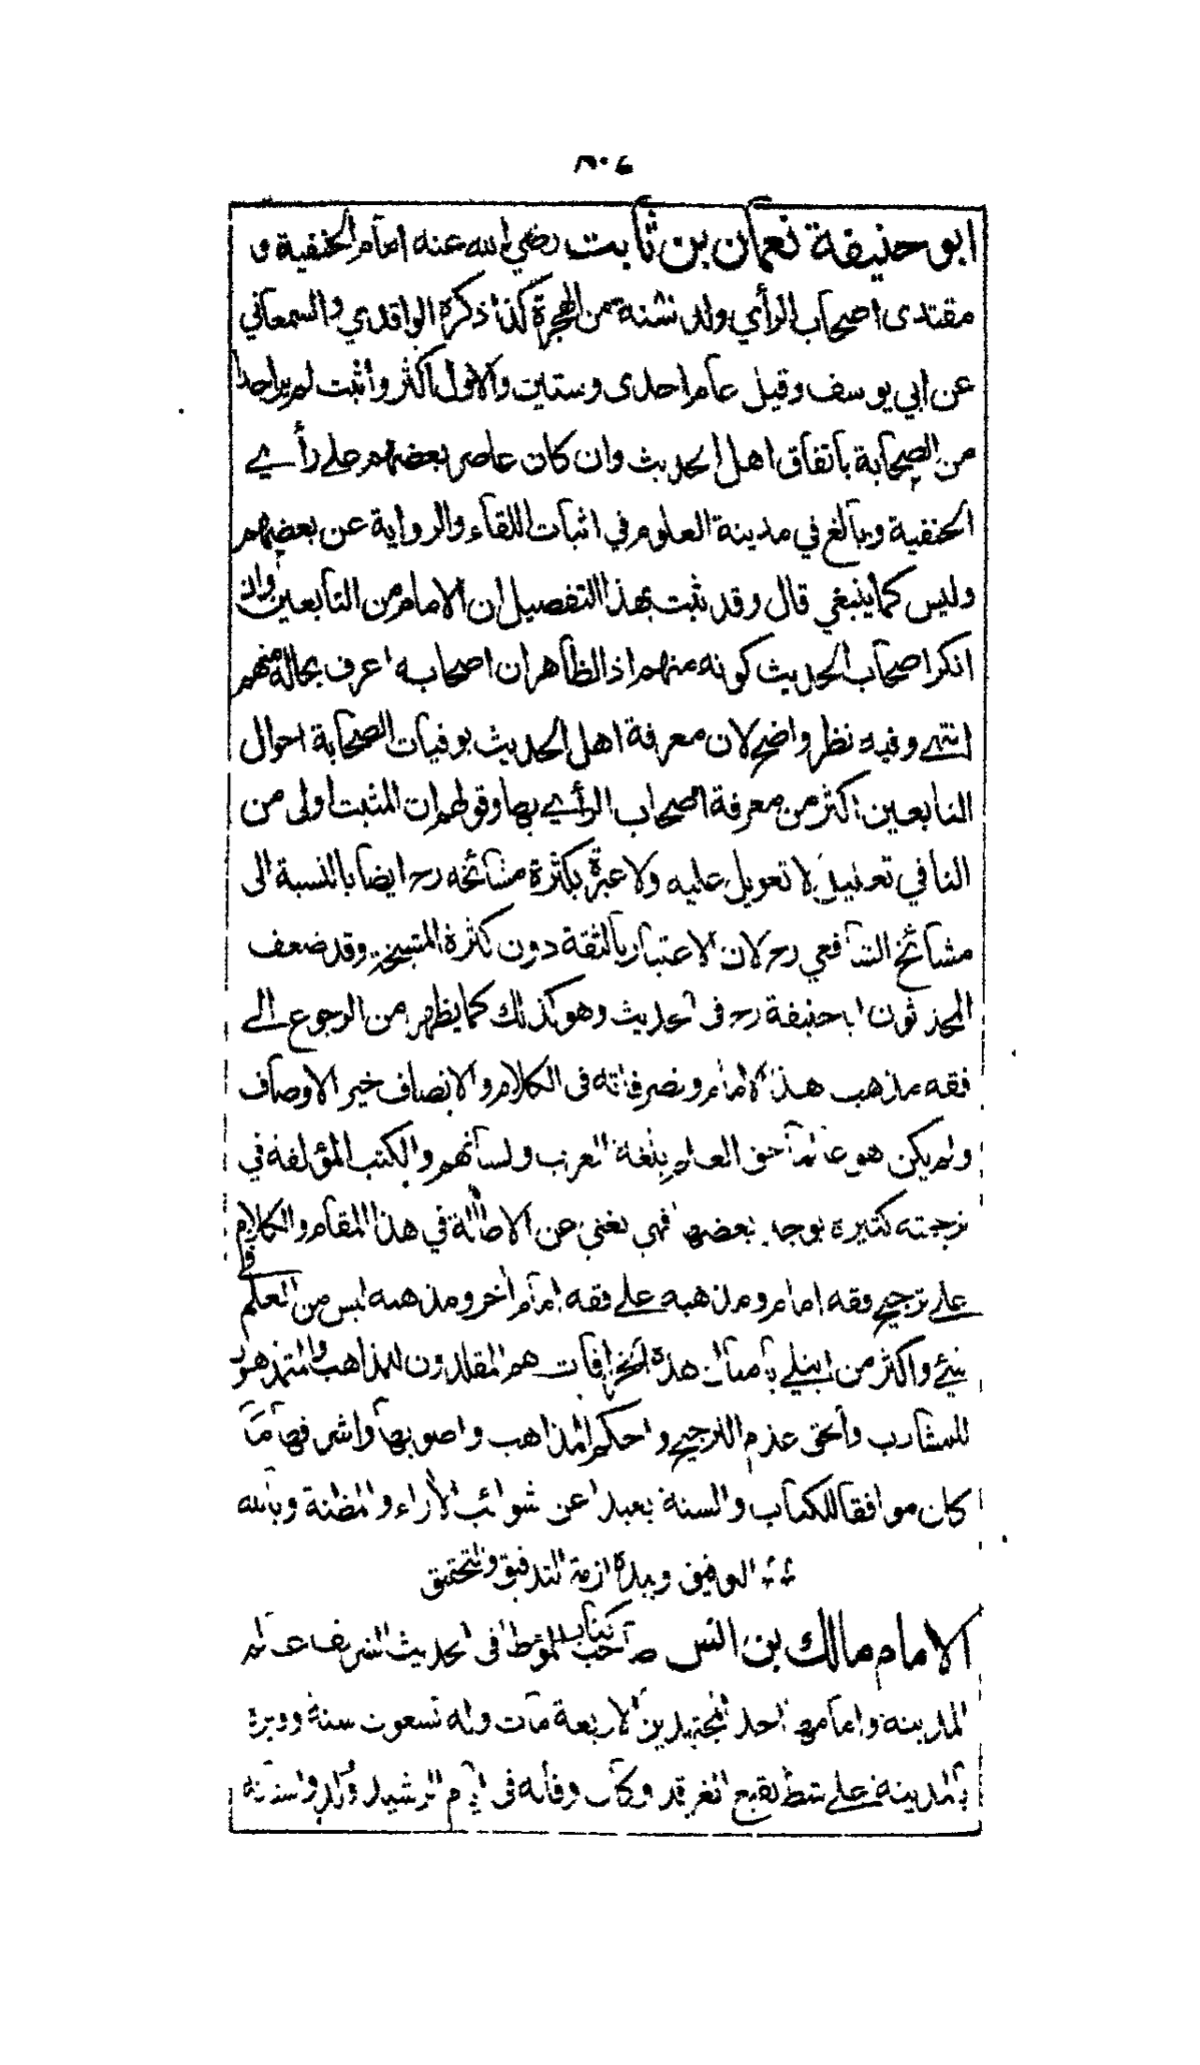 ٨٠٤
ابو حنيفة نعمان بن ثابت رضي الله عنه امام الحنفية و
مقتدى اصحاب الرأي ولد سنة من الهجرة كذا ذكره الواقدي والسمعاني
عن ابي يوسف وقيل عام احدى وستين والاول اكثر واثبت لم ير احدا
من الصحابة باتفاق اهل الحديث وان كان عاصر بعضهم على رأي
الحنفية وبالغ في مدينة العلوم في اثبات اللقاء والرواية عن بعضهم
وليس كما ينبغي قال وقد ثبت بهذا التفصيل ان الامام من التابعين وان
انكر اصحاب الحديث كونه منهم اذ الظاهر ان اصحابه اعرف بحاله منهم
انتهى وفيه نظر واضح لان معرفة اهل الحديث بوفيات الصحابة احوال
التابعين اكثر من معرفة اصحاب الرأي بها وقولهم ان المثبت اولى من
النافي تعليل لا تعويل عليه ولا عبرة بكثرة مشائخه رح ايضا بالنسبة الى
مشائخ الشافعي رح لان الاعتبار بالثقة دون كثرة المشيخة وقد ضعف
المحدثون ابا حنيفة رح في الحديث وهو كذلك كما يظهر من الرجوع الى
فقه مذهب هذا الامام وتصرفاته في الكلام والانصاف خير الاوصاف
ولم يكن هو عالما حق العلم بلغة العرب ولسانهم والكتب المؤلفة في
ترجمته كثيرة يوجد بعضها فهي تغني عن الاطالة في هذا المقام والكلام في
على ترجيح فقه امام ومذهبه على فقه امام آخر ومذهبه ليس من العلم
شيء واكثر من ابتلى بامثال هذه الخرافات هم المقلدون للمذاهب والمتمذهبون
للمشارب والحق عدم الترجيح واحكم المذاهب واصوبها واشرفها ما
كان موافقا للكتاب والسنة بعيدا عن شوائب الآراء والمظنة وبالله
التوفيق وبيده ازمة التدقيق والتحقيق
الامام مالك بن انس صاحب كتاب الموطا في الحديث الشريف عالم
المدينة وامامها احد المجتهدين الاربعة مات وله تسعون سنة وقبره
بالمدينة على شط بقيع الغرقد وكان وفاته في ايام الرشيد